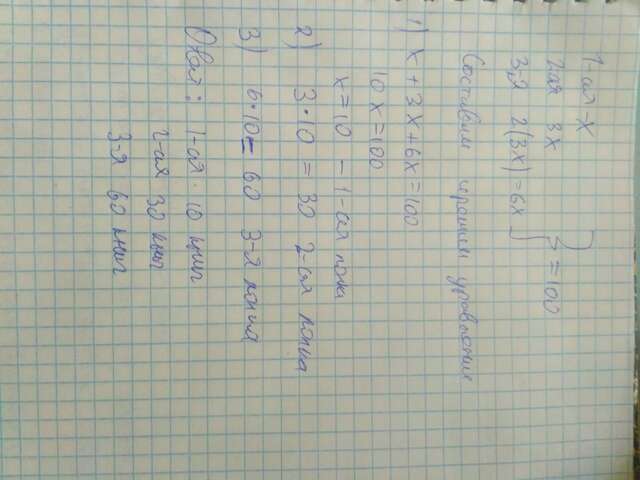 1-ая - x
2-ая 3x
3-я 2(3x) = 6x } = 100
Составим и решим уравнение
1) x + 3x + 6x = 100
10x = 100
x = 10 - 1-ая полка
2) 3 · 10 = 30 2-ая полка
3) 6 · 10 = 60 3-я полка
Ответ: 1-ая · 10 книг
2-ая 30 книг
3-я 60 книг